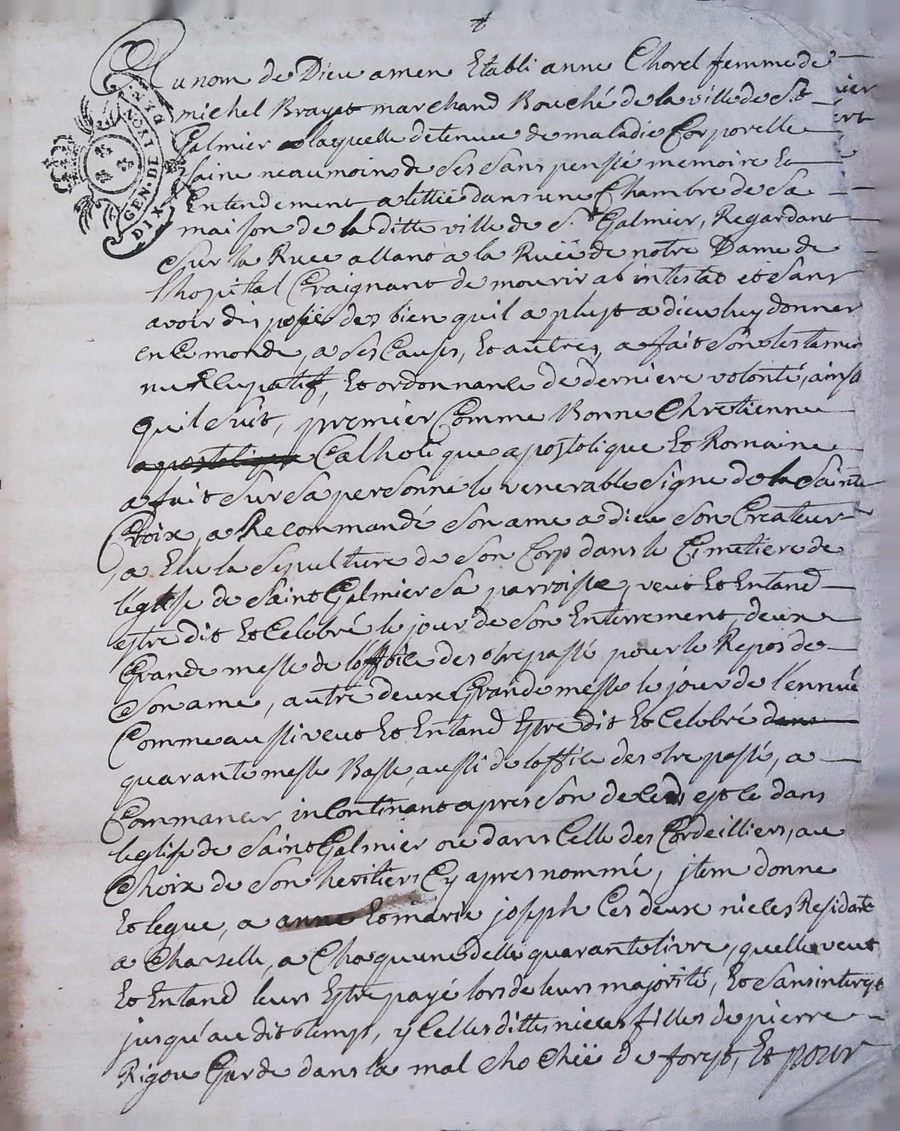 Au nom de Dieu amen Etabli anne Chorel femme de
michel Brayet marchand Bouché de la ville de St
GEN. DE LYON
DIX
Galmier laquelle detenue de maladie Corporelle
saine neaumoins de ses sans pensée memoire Et
Entendement alittée dans une Chambre de sa
maison de la ditte ville de St Galmier, Regardant
sur la Ruee allant a la Ruëe de notre Dame de
lhopital Craignant de mourir ab intestat et sans
avoir disposée des bien quil a plust a dieu luy donner
en Ce monde, a ses Causes, Et autres, a fait son testamen
nuncupatif, Et ordonnance de derniere volonté, ainsy
quil suit, premier Comme Bonne Chretienne
apostolique Catholique apostolique Et Romaine
a fait sur sa personne le venerable signe de la Sainte
Croix, a Recommandé son ame a dieu son Createur
a Elu la sepulture de son Corp dans le Cimetiere de
leglise de Saint Galmier sa parroisse, veut Et Entand
estre dit Et Celebré le jour de son Enterrement, deux
Grande messe de loffice des trepassé pour le Repos de
son ame, autre deux Grande messe le jour de l'ennué
Comme aussi veut Et Entand Estre dit Et Celebré dans
quarante messe Basse aussi de loffice des trepassé, a
Commancer incontinant apres son deceds est ce dans
leglise de Saint Galmier ou dans Celle des Cordeilliers, au
Choix de son heritiers Cy apres nommé, jtem donne
Et legue, a anne Et marie joseph Ces deux nieces Residante
a Chazelle, a Chaquune delle quarante livre, quelle veut
Et Entand leurs Estre payé lors de leurs majorité, Et sans interest
jusqu'au dit temps, yCelles dittes nieces filles de pierre
Rigou Garde dans la mal chochëe de forest, Et pour